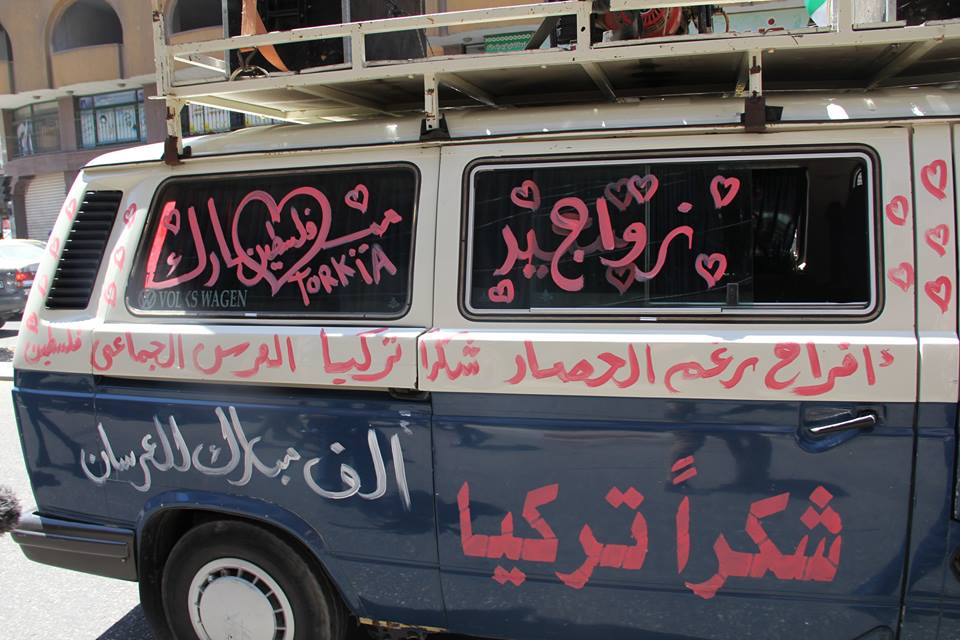 زواج
مبارك
فلسطين
TORKiA
VOLKSWAGEN
أفراح رغم الحصار شكرا تركيا العرس الجماعي فلسطين
ألف مبارك للعرسان
شكراً تركيا